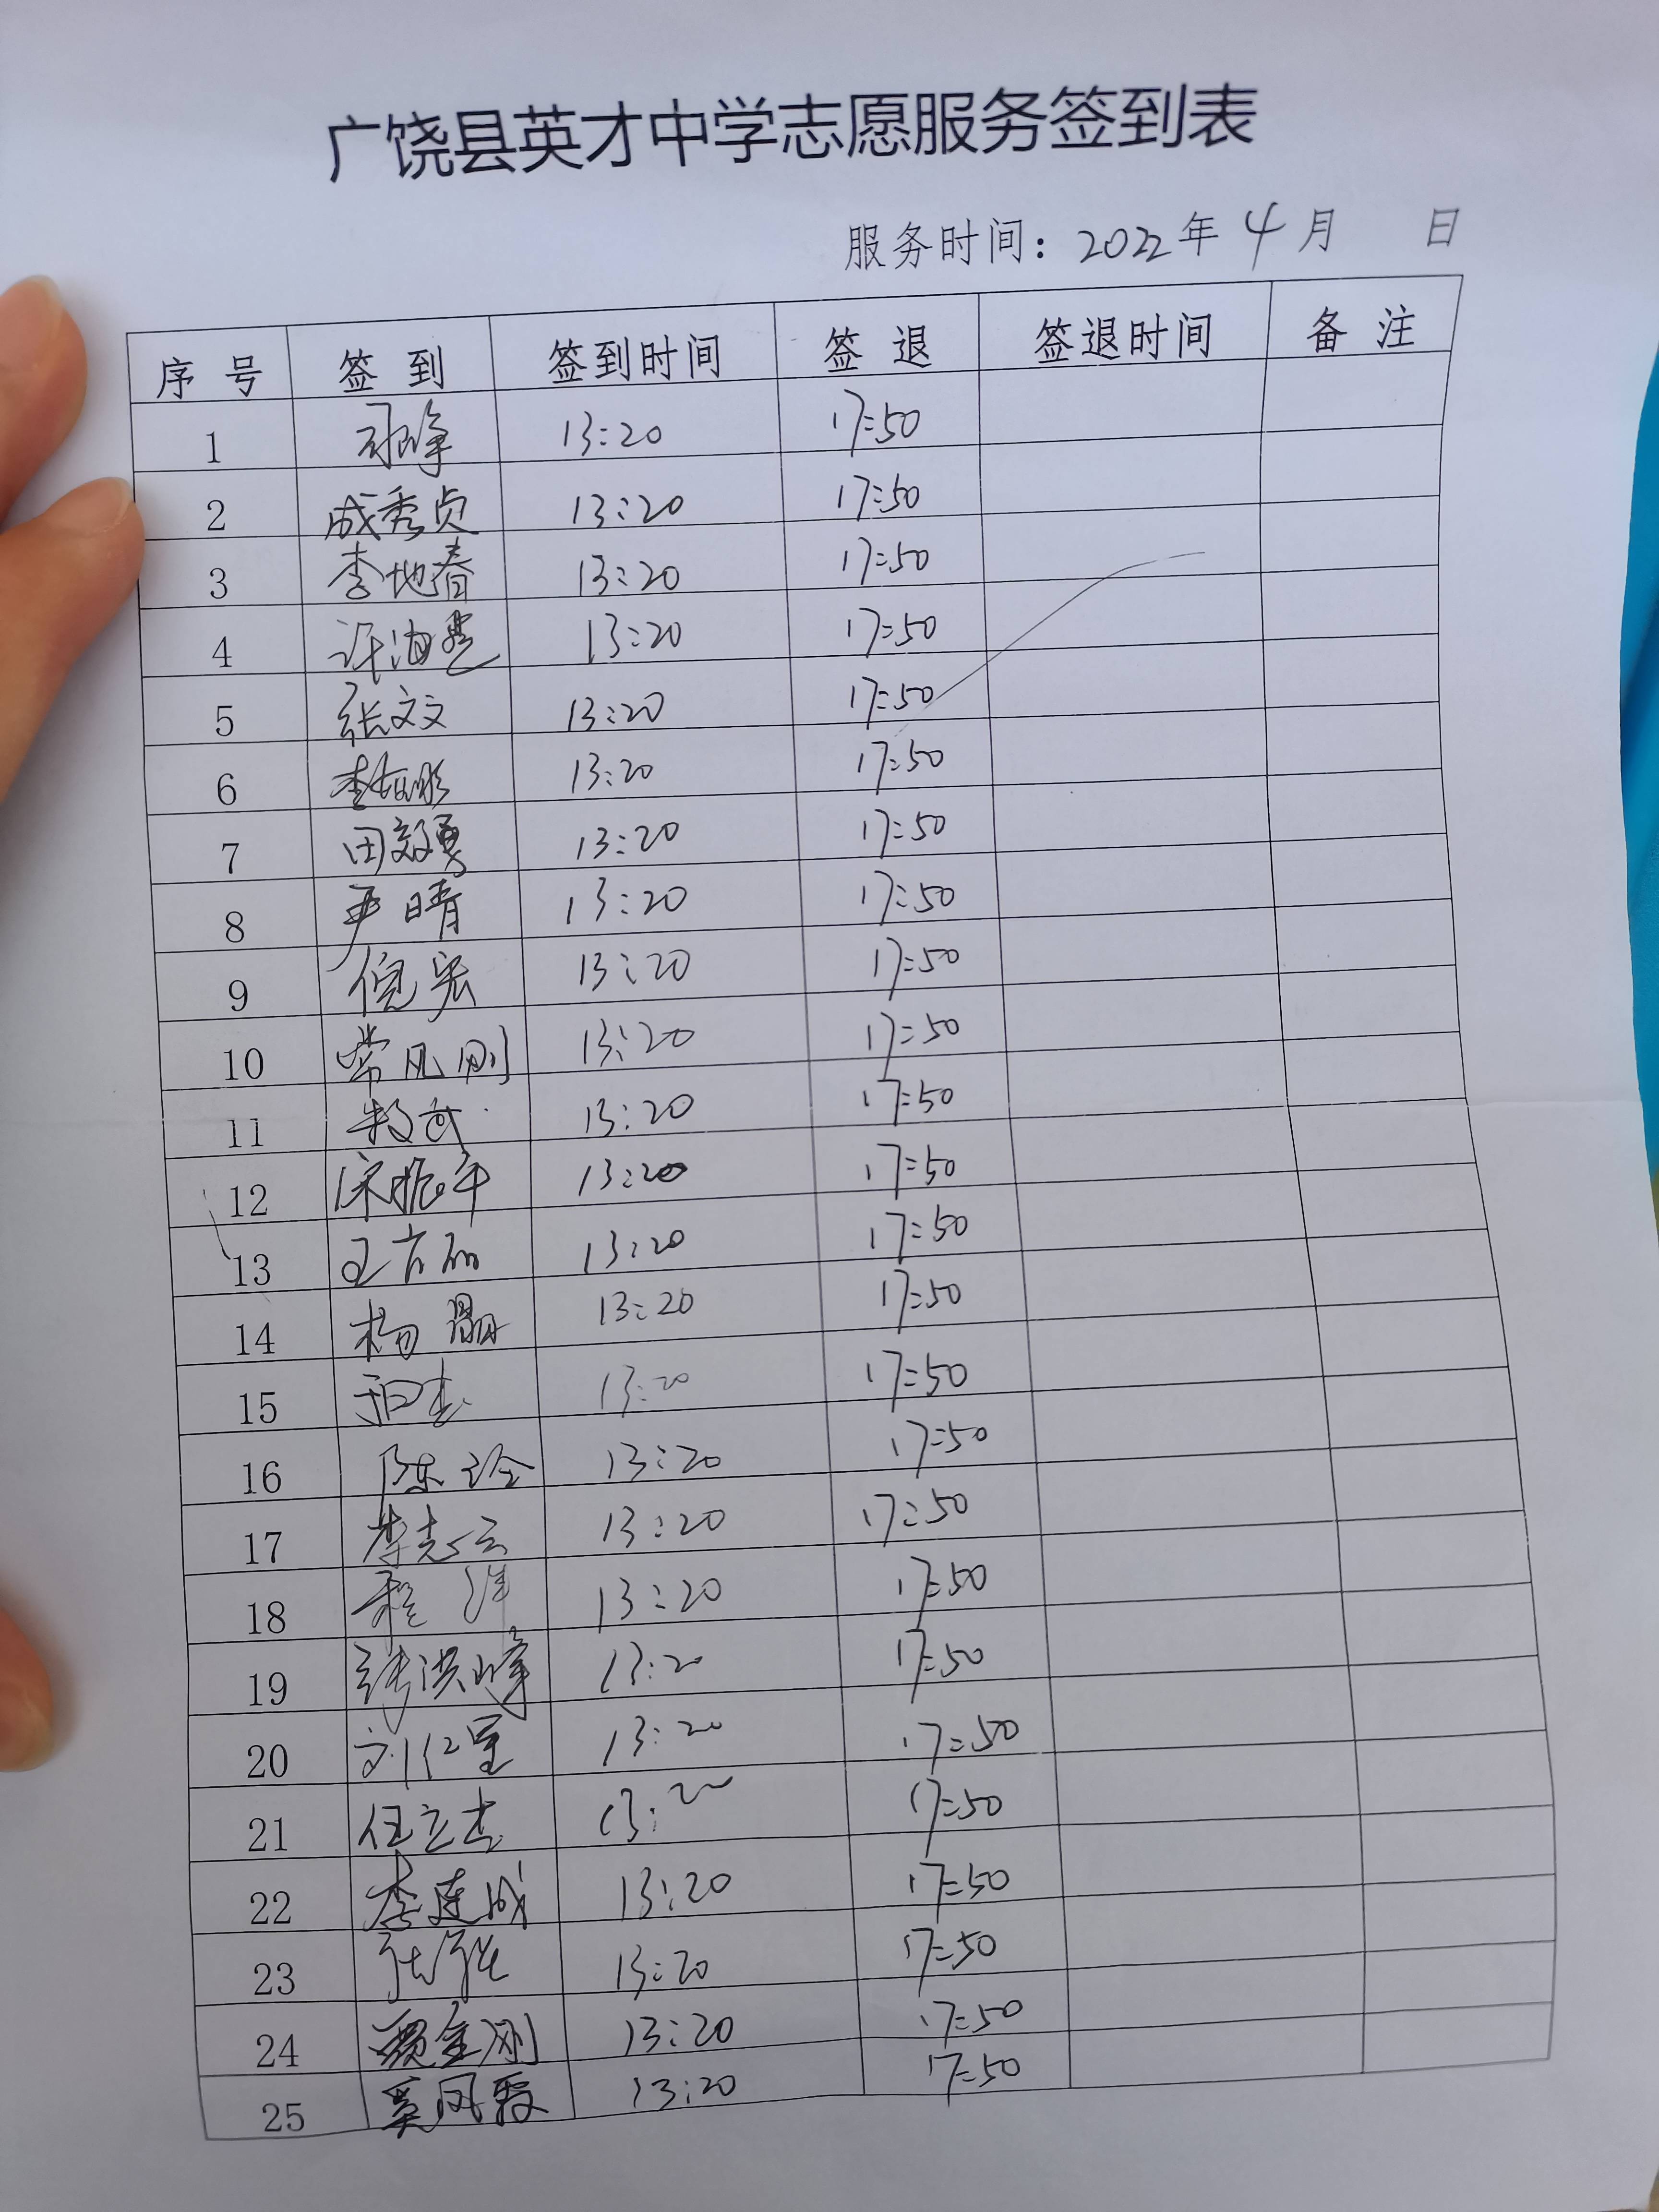 广饶县英才中学志愿服务签到表
服务时间：2022年 4月 日
序 号 签 到 签到时间 签 退 签退时间 备 注
1 13:20 17:50
2 成秀贞 13:20 17:50
3 李地春 13:20 17:50
4 13:20 17:50
5 张文文 13:20 17:50
6 13:20 17:50
7 13:20 17:50
8 尹晴 13:20 17:50
9 倪宏 13:20 17:50
10 常凡刚 13:20 17:50
11 13:20 17:50
12 13:20 17:50
13 13:20 17:50
14 杨晶 13:20 17:50
15 13:20 17:50
16 陈诠 13:20 17:50
17 李志云 13:20 17:50
18 13:20 17:50
19 张洪峰 13:20 17:50
20 13:20 17:50
21 任立杰 13:20 17:50
22 李连成 13:20 17:50
23 13:20 17:50
24 贾金刚 13:20 17:50
25 13:20 17:50